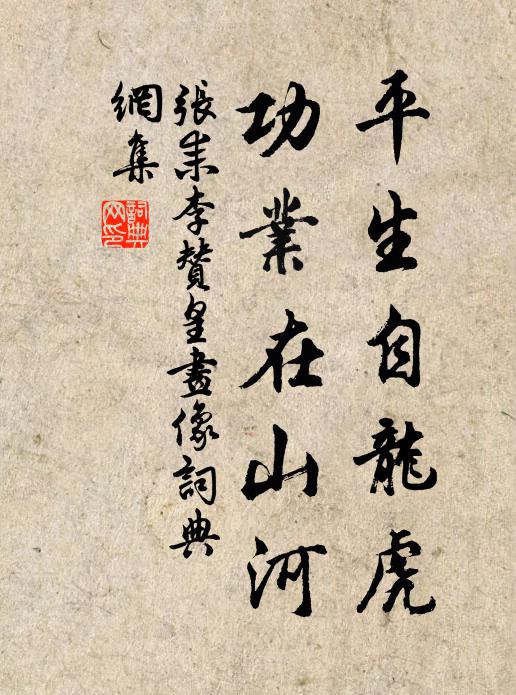 平生自龍虎
功業在山河
張耒李贊皇畫像詞典
網集
詞典
網印